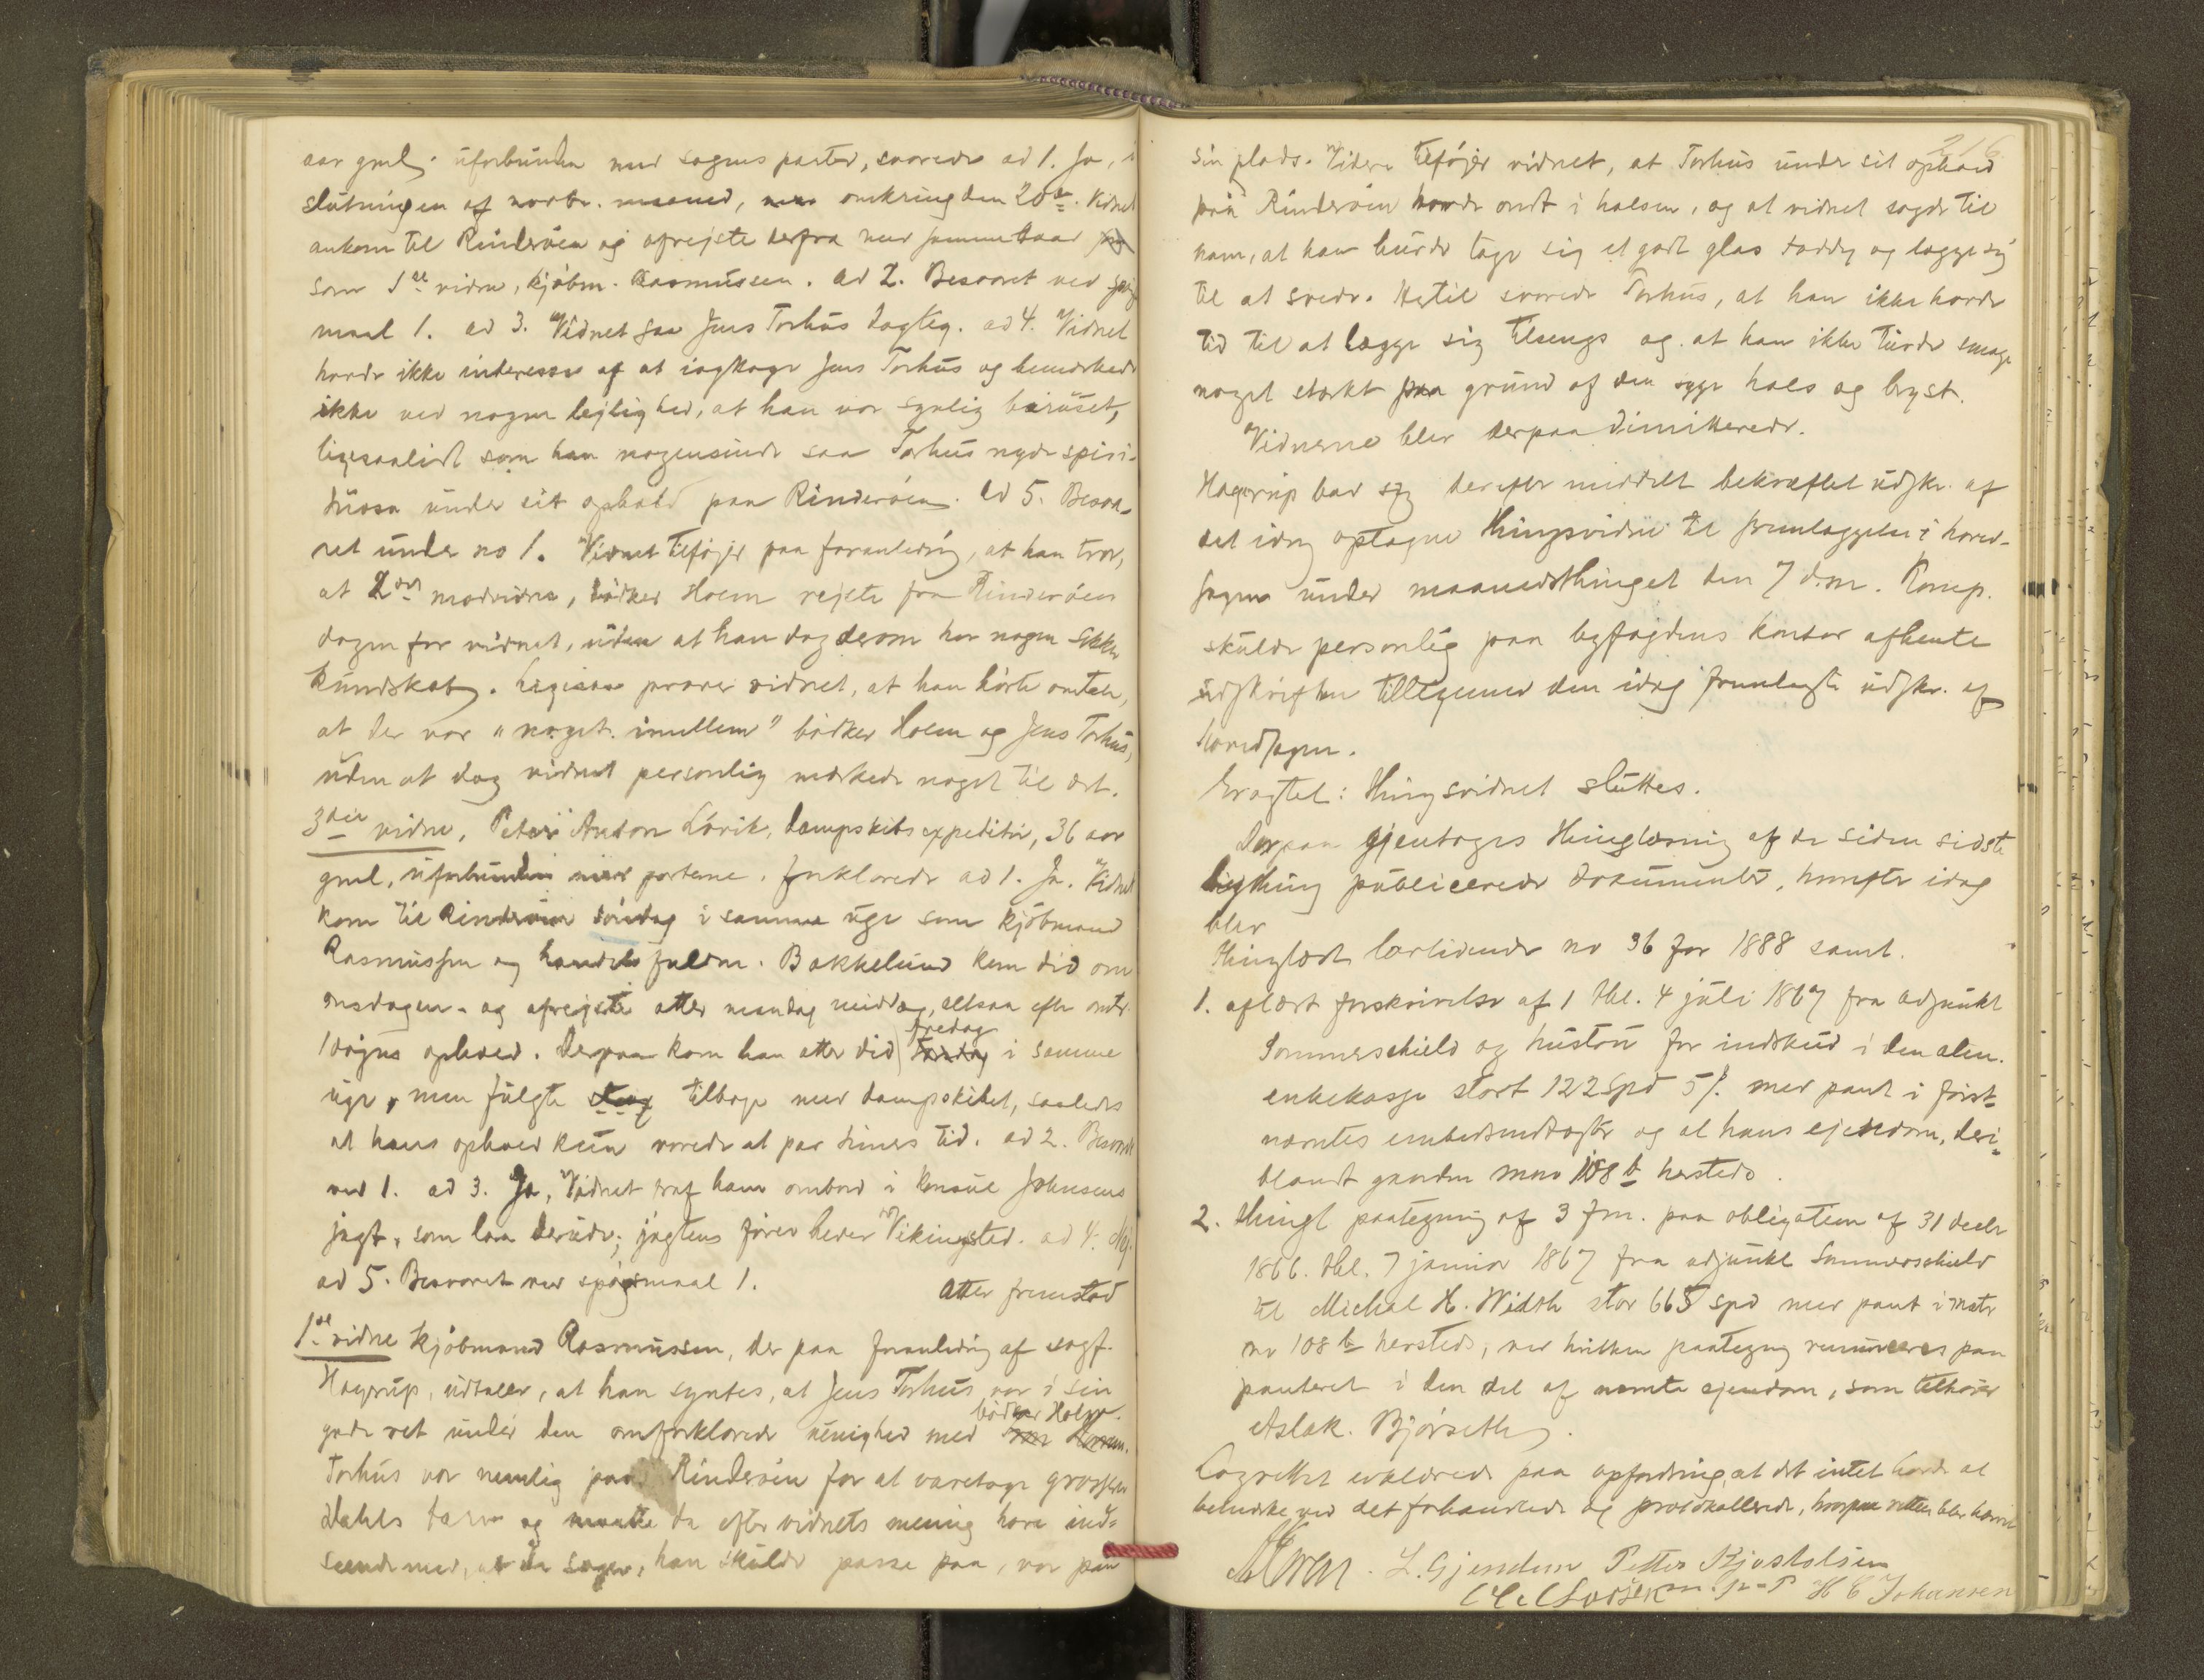 aar gml. uforbunden med sagens parter, svarede ad 1. Ja, i
slutningen af novbr. maaned, omkring den 20de. Vidnet
ankom til Rinderöen og afrejste derfra med samme baad
som 1ste vidne, kjöbm. Rasmussen. Ad 2. Besvaret ved spörgs
maal 1. ad 3. Vidnet saa Jens Torhus daglig. ad 4. Vidnet
havde ikke interesse af at iagttage Jens Torhus og bemærkede
ikke ved nogen lejlighed, at han var synlig beruset,
ligesaalidt som han nogensinde saa Torhus nyde spiri-
tuosa under sit ophold paa Rinderöen. Ad 5. Besva-
ret under no 1. Vidnet tilföjer paa foranledng, at han tror,
at 2det modvidne, bödker Holm rejste fra Rinderöen
dagen før vidnet, uden at han dog derom har nogen sikker
kundskab. Ligesaa prover vidnet, at han hörte omtale,
at der var "noget imellem" bödker Holm og Jens Torhus,
uden at dog vidnet personlig mærkede noget til det.
3die vidne, Peter Anton Lövik, dampskibsexpeditör, 36 aar
gml, uforbunden med parterne. forklarede ad 1. Ja. Vidnet
kom til Rinderöen söndag i samme uge som kjöbmand
Rasmussen og handelsfuldm. Bakkelund kom did om
onsdagen og afrejste atter mandag middag, altsaa efter omtr.
1 dögns ophold. Derpaa kom han atter did fredag i samme
uge, men fulgte strax tilbage med dampskibet, saaledes
at hans ophold kun varede et par timers tid. ad 2. Besvaret
ved 1. ad 3. Ja, Vidnet traf ham ombord i konsul Johnsens
jagt, som laa derude; jagtens förer heder Vikingstad. ad 4. Nej.
ad 5. Besvaret ved spörgsmaal 1. atter fremstod
1ste vidne kjöbmand Rasmussen, der paa foranledng af sagf.
Hagerup, udtaler, at han syntes, at Jens Torhus var i sin
bödker Holm.
gode ret under den omforklarede uenighed med
Torhus var nemlig paa Rinderöen for at varetage grosserer
Dahls tarv og maatte da efter vidnets mening have ind-
seende med, at de sager, han skulde passe paa, var paa
216
sin plads. Videre tilföjer vidnet, at Torhus under sit ophold
paa Rinderöen havde ondt i halsen, og at vidnet sagde til
ham, at han burde tage sig et godt glas toddy og lægge sig
til at svede. Hertil svarede Torhus, at han ikke havde
tid til at lægge sig tilsengs og at han ikke turde smage
noget stærkt paa grund af den syge hals og bryst.
Vidnerne blev derpaa dimitterede.
Hagerup bad sig derefter meddelt bekræftet udskr. af
det idag optagne thingsvidne til fremlæggelse i hoved-
sagen under maanedsthinget den 7 d.m. Komp.
skulde personlig paa byfogdens kontor afhente
udskriften tilligemed den idag fremlagte udskr. af
hovedsagen.
Eragtet: Thingsvidnet sluttes.
Derpaa gjentoges thinglæsning af de siden sidste
bything publicerede dokumenter, hvorefter idag
blev
thinglæst lovtidende no 36 for 1888 samt.
1. aflæst forskrivelse af 1 tbl. 4 juli 1867 fra adjunkt
Sommerschield og hustru for indskud i den alm.
enkekasse stort 122 spd 5 ß. med pant i först-
nævntes embedsindtægter og al hans ejendom, deri-
blandt gaarden mno 108 b hersteds.
2. thingl paategning af 3 f.m. paa obligation af 31 decbr
1866. tbl. 7 januar 1867 fra adjunkt Sommerschield
til Michal H. Width stor 665 spd med pant i matr
no 108 b hersteds, ved hvilken paategng renunceres paa
panteret i den del af nævnte ejendom, som tilhörer
Aslak Björseth.
Lagrettet erklærede paa opfordring, at det intet havde at
bemærke ved det forhandlede og protokollerede, hvorpaa retten blev hævet
L. Gjendem Petter Kjostolsen
H C Johansen